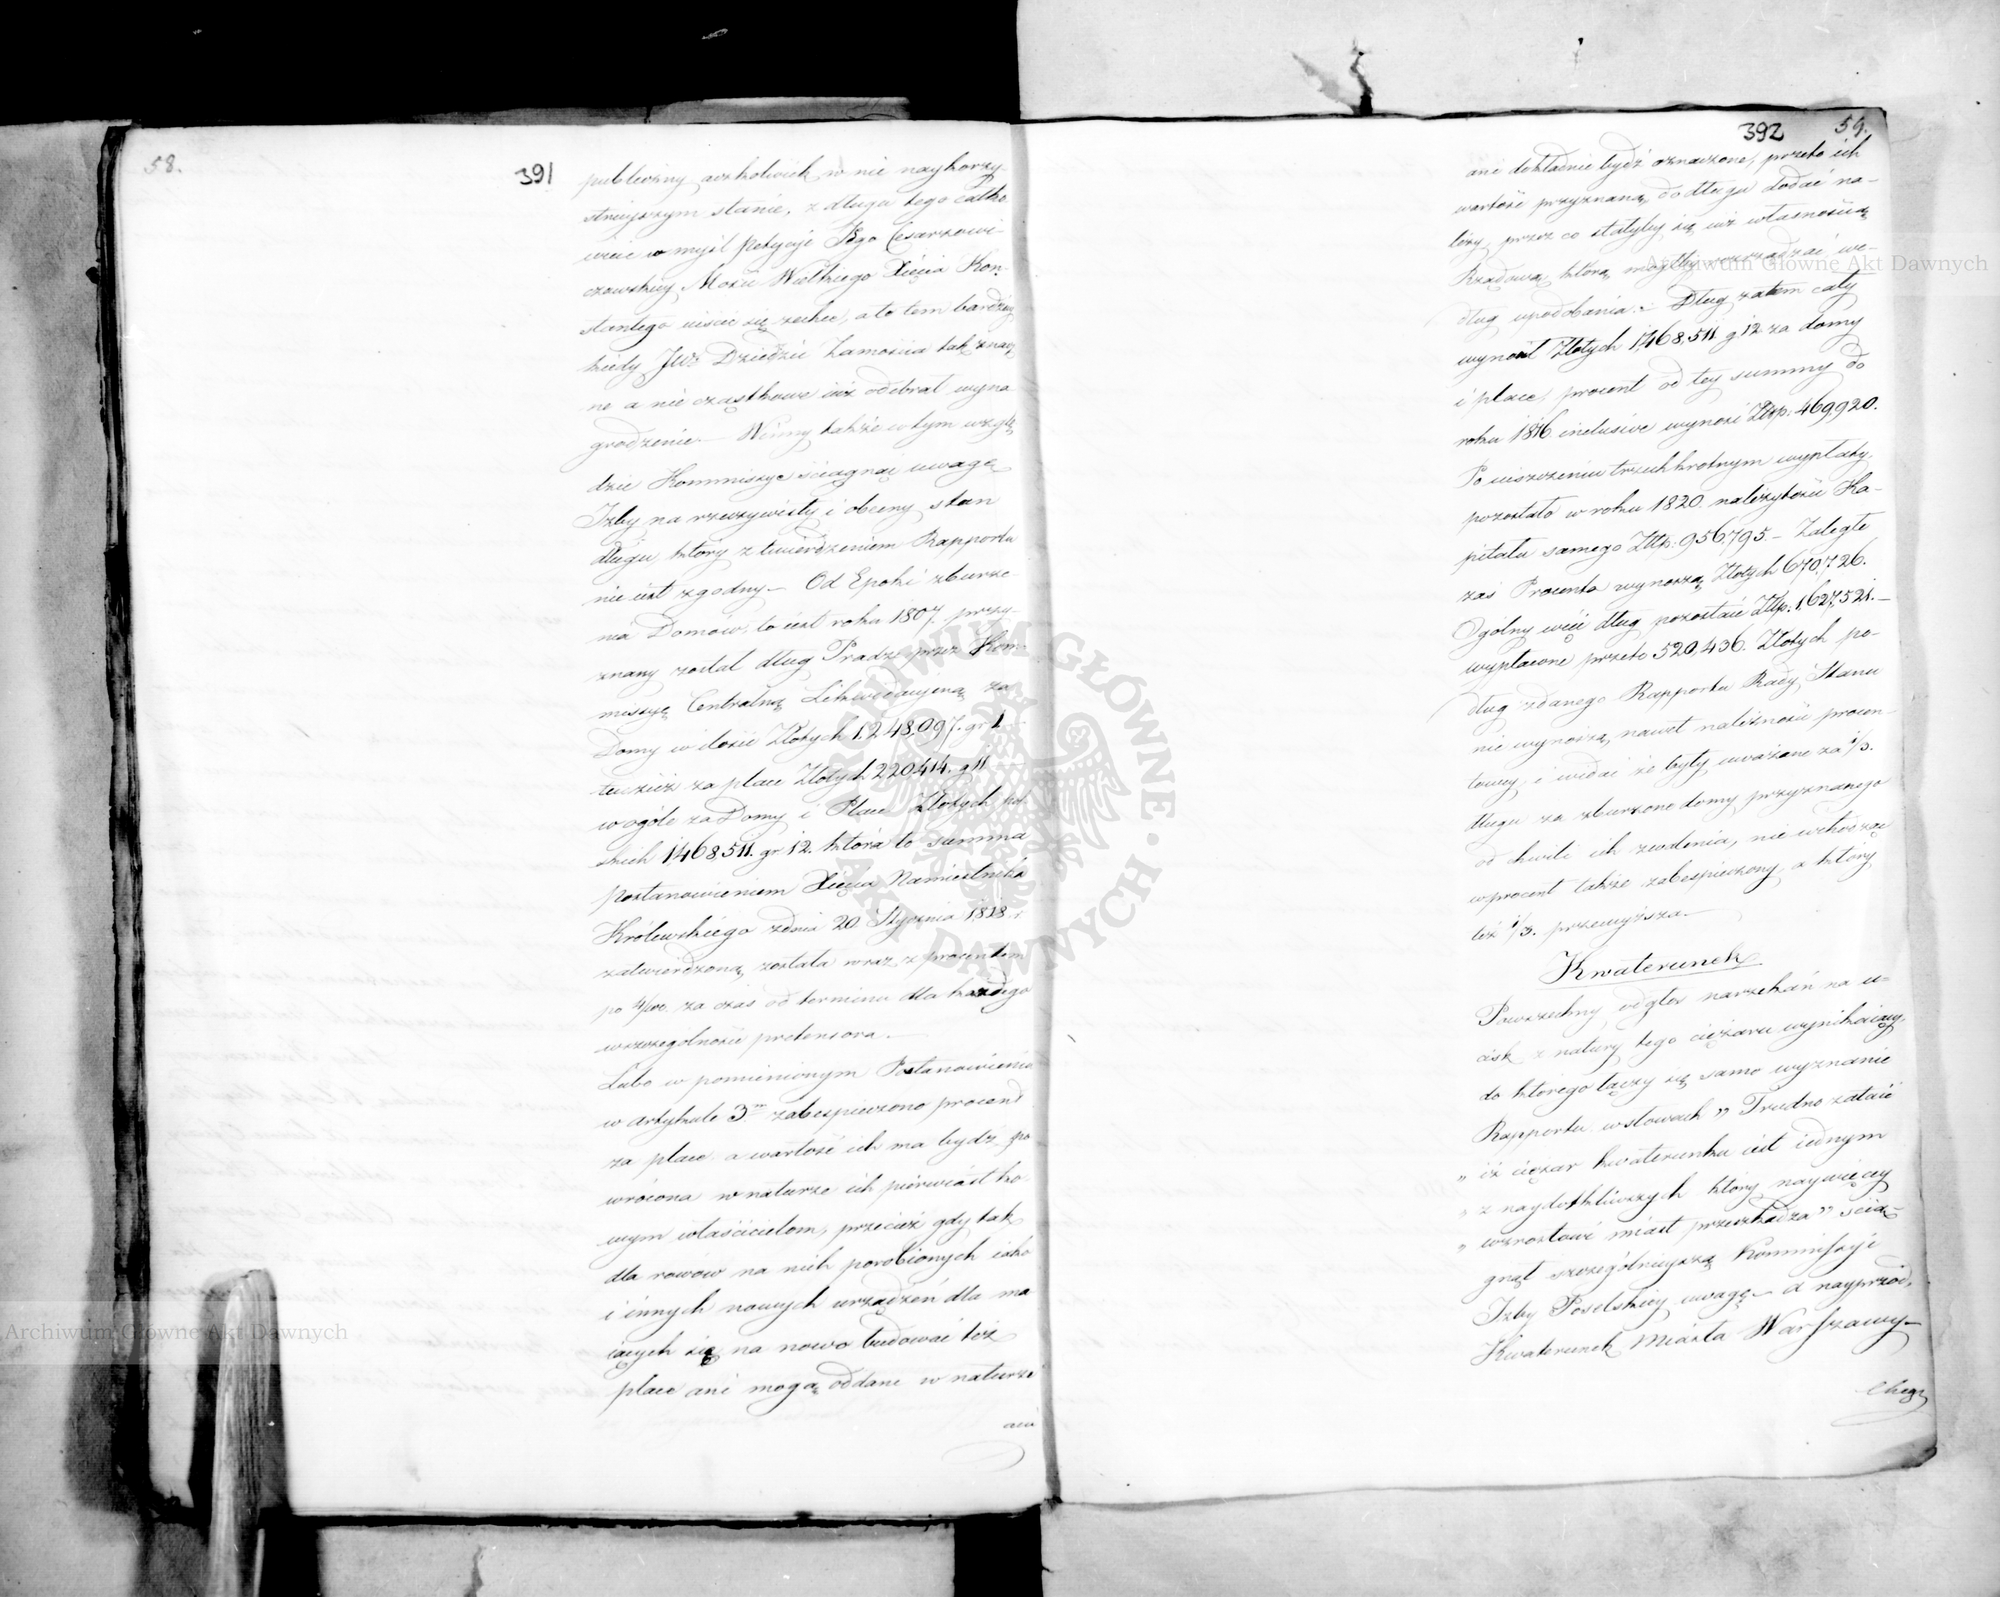 58.
391
publiczny aczkolwiek w nie naykorzy
stnieyszym stanie, z długu tego całko
wicie w myśl Petycyi Jego Cesarzowi
czowskiey Mości Wielkiego Xięcia Kon
stantego uiścić się zechce, a to tem bardziey
kiedy JWż Dziedzic Zamościa tak znacz
ne a nie cząstkowe iuż odebrał wyna
grodzenie. Winny także w tym wzglę
dzie Kommissye ściągnąć uwagę
Izby na rzeczywisty i obecny stan
długu, który z twierdzeniem Rapportu
nie iest zgodny – Od Epoki zburze
nia Domów, to iest roku 1807. przy-
znany został dług Pradze przez Kom
missyę Centralną Likwidacyiną za
Domy w ilości Złotych 1,248,097. gr 1.
tudzież za place Złotych 220,414. g 11
w ogóle za Domy i Place Złotych pol
skich 1,468,511. gr 12. która to summa
Postanowieniem Xięcia Namiestnika
Królewskiego z dnia 20 Stycznia 1818 r
zatwierdzoną została wraz z procentem
po 4/100. za czas od terminu dla każdego
wszczególności pretensora. –
Lubo w pomienionym Postanowieniu
w artykule 3m zabespieczono procent
za place a wartość ich ma bydź po
wrócona w naturze ich pierwiastko
wym właścicielom, przecież gdy tak
dla rowów na nich porobionych iako
i innych nowych urządzeń dla ma
iących się na nowo budować też
place ani mogą oddane w naturze
ani
392
59.
ani dokładnie bydź oznaczone, przeto ich
wartość przyznaną do długu dodać na-
leży, przez co stałyby się iuż własnością
Rządową, którą mógłby rozrządzać we-
dług upodobania. Dług zatem cały
wynosił Złotych 1,468,511 g 12 za domy
i place, procent od tey summy do
roku 1816 inclusive wynosi Złłp: 469,920.
Po uiszczeniu trzechkrotnym wypłaty
pozostało w roku 1820. należytości Ka-
pitału samego Złłp: 956,795. – Zaległe
zaś Procenta wynoszą Złotych 670,726.
Ogólny więc dług pozostaie Złłp: 1,627,521. –
wypłacone przeto 520,436. Złotych po-
dług zdanego Rapportu Rady Stanu
nie wynoszą nawet należności procen-
towey, i widać że były uważane za 1/3.
długu za zburzone domy przyznanego
od chwili ich zwalenia, nie wchodząc
w procent także zabespieczony, a który
też 1/3. przewyższa. –
Kwaterunek
Powszechny odgłos narzekań na u-
cisk z natury tego ciężaru wynikaiący,
do którego łączy się samo wyznanie
Rapportu w słowach „ Trudno zataić
„ iż ciężar kwaterunku iest iednym
„ z naydotkliwszych który naywięcey
„ wzrostowi miast przeszkadza” ścią-
gnął szczególnieyszą Kommissyi
Izby Poselskiey uwagę – a nayprzód,
Kwaterunek Miasta Warszawy –